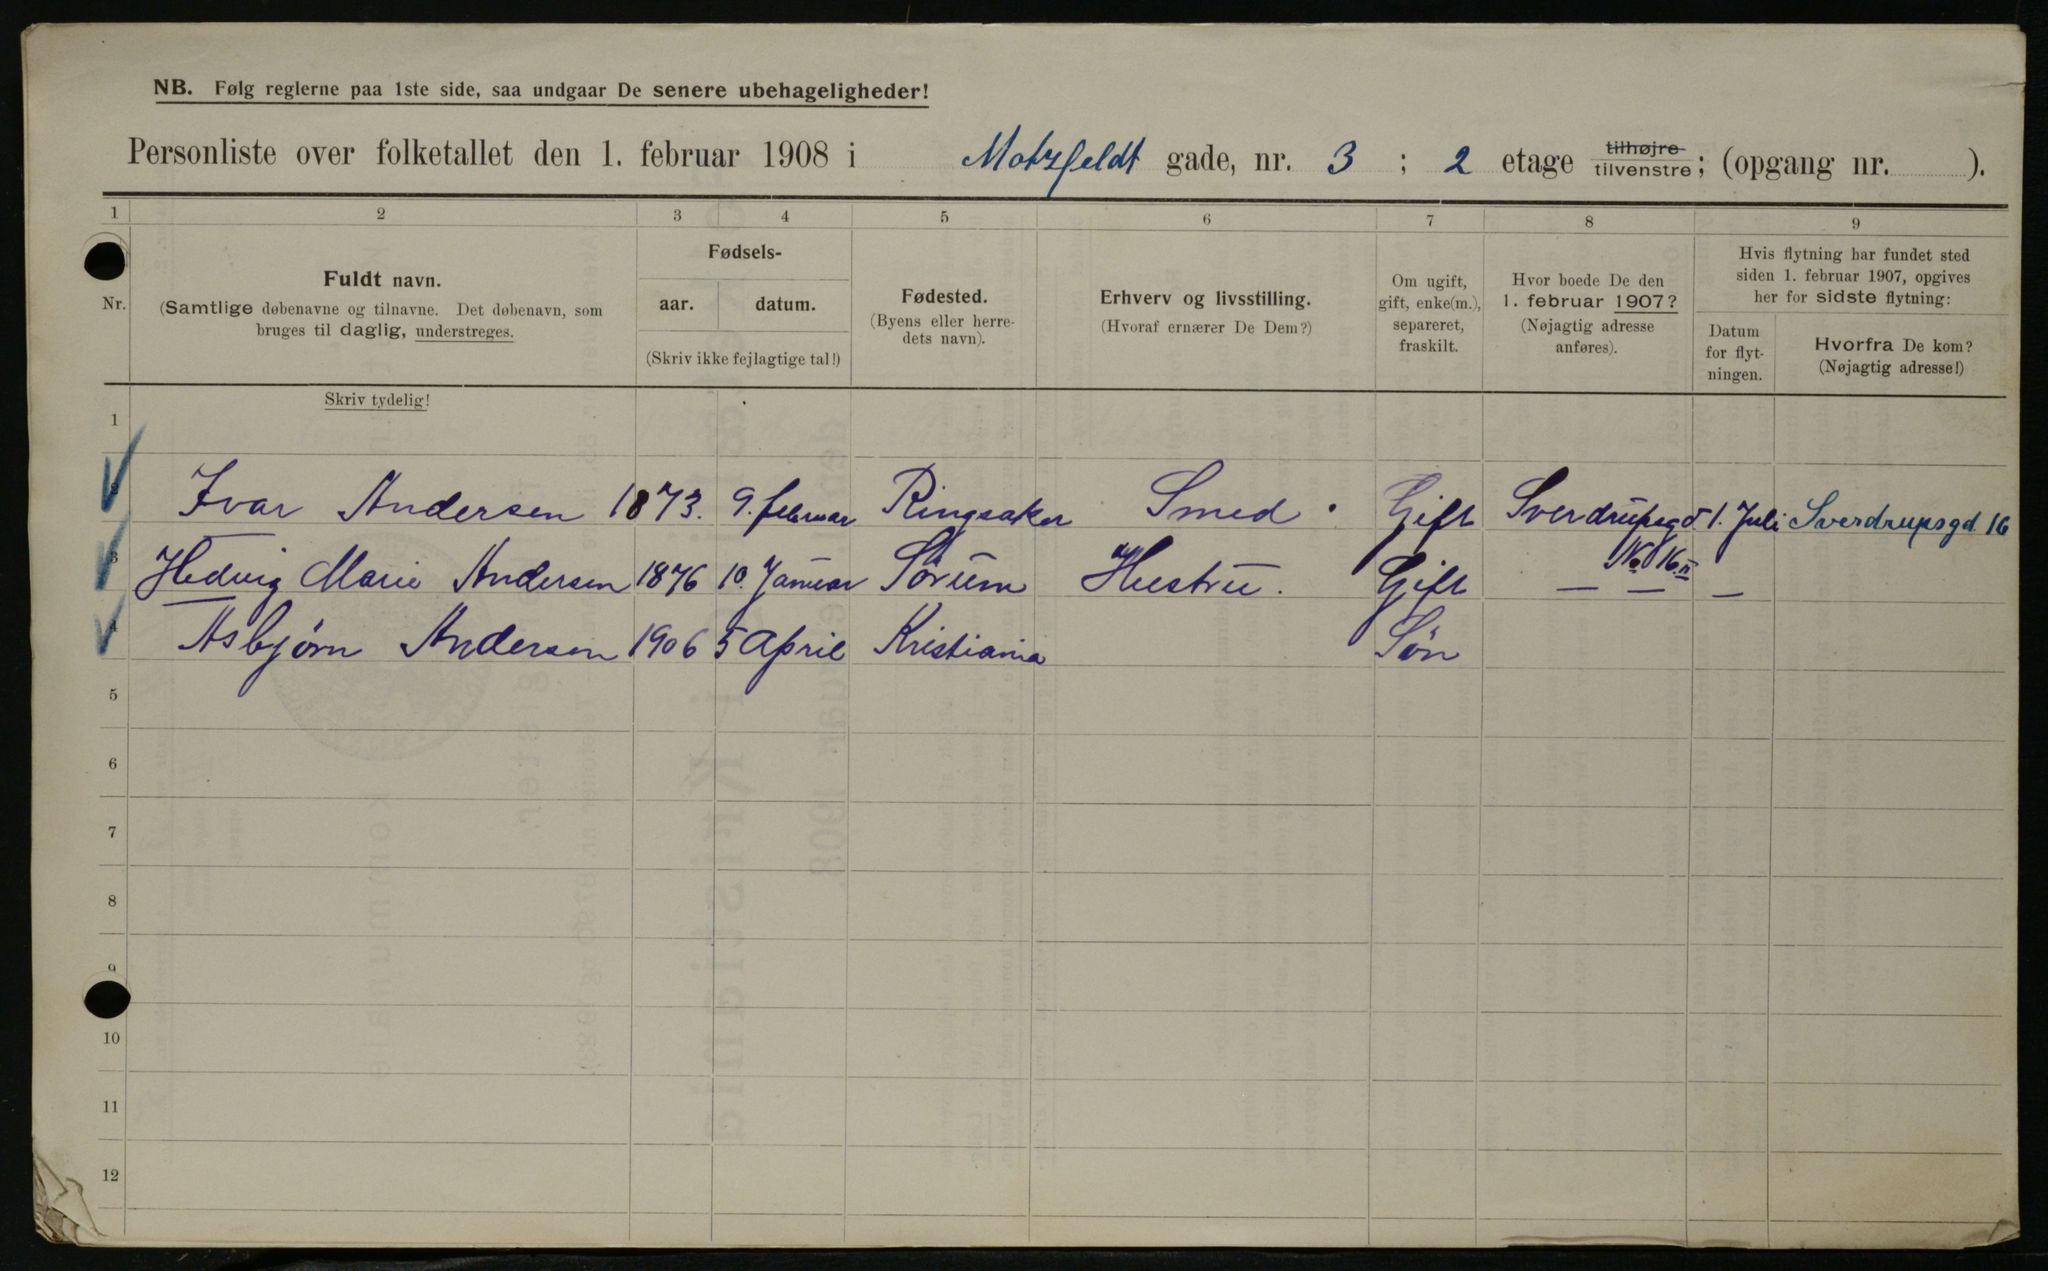 NB. Følg reglerne paa 1ste side, saa undgaar De senere ubehageligheder!
Personliste over folketallet den 1. februar 1908 i Motzfeldt gade, nr. 3 ; 2 etage tilhøjre tilvenstre; (opgang nr. ).
1 2 3 4 5 6 7 8 9
Nr.
Fuldt navn.
(Samtlige døbenavne og tilnavne. Det døbenavn, som
bruges til daglig, understreges.
Skriv tydelig!
Fødsels-
aar. datum.
(Skriv ikke fejlagtige tal!)
Fødested.
(Byens eller herre-
dets navn).
Erhverv og livsstilling.
(Hvoraf ernærer De Dem?)
Om ugift,
gift, enke(m.),
separeret,
fraskilt.
Hvor boede De den
1. februar 1907?
(Nøjagtig adresse
anføres).
Hvis flytning har fundet sted
siden 1. februar 1907, opgives
her for sidste flytning:
Datum
for flyt-
ningen.
Hvorfra De kom?
(Nøjagtig adresse!)
1
2 Ivar Andersen 1873. 9. februar Ringsaker Smed. Gift Sverdrupsgd. 1. Juli Sverdrupsgd. 16
No 16 II
3 Hedvig Marie Andersen 1876 10. Januar Sørum Hustru. Gift — — —
4 Asbjørn Andersen 1906 5 April Kristiania Søn
5
6
7
8
9
10
11
12